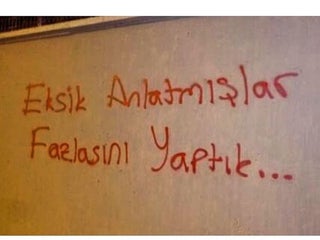 Eksik Anlatmışlar
Fazlasını Yaptık...